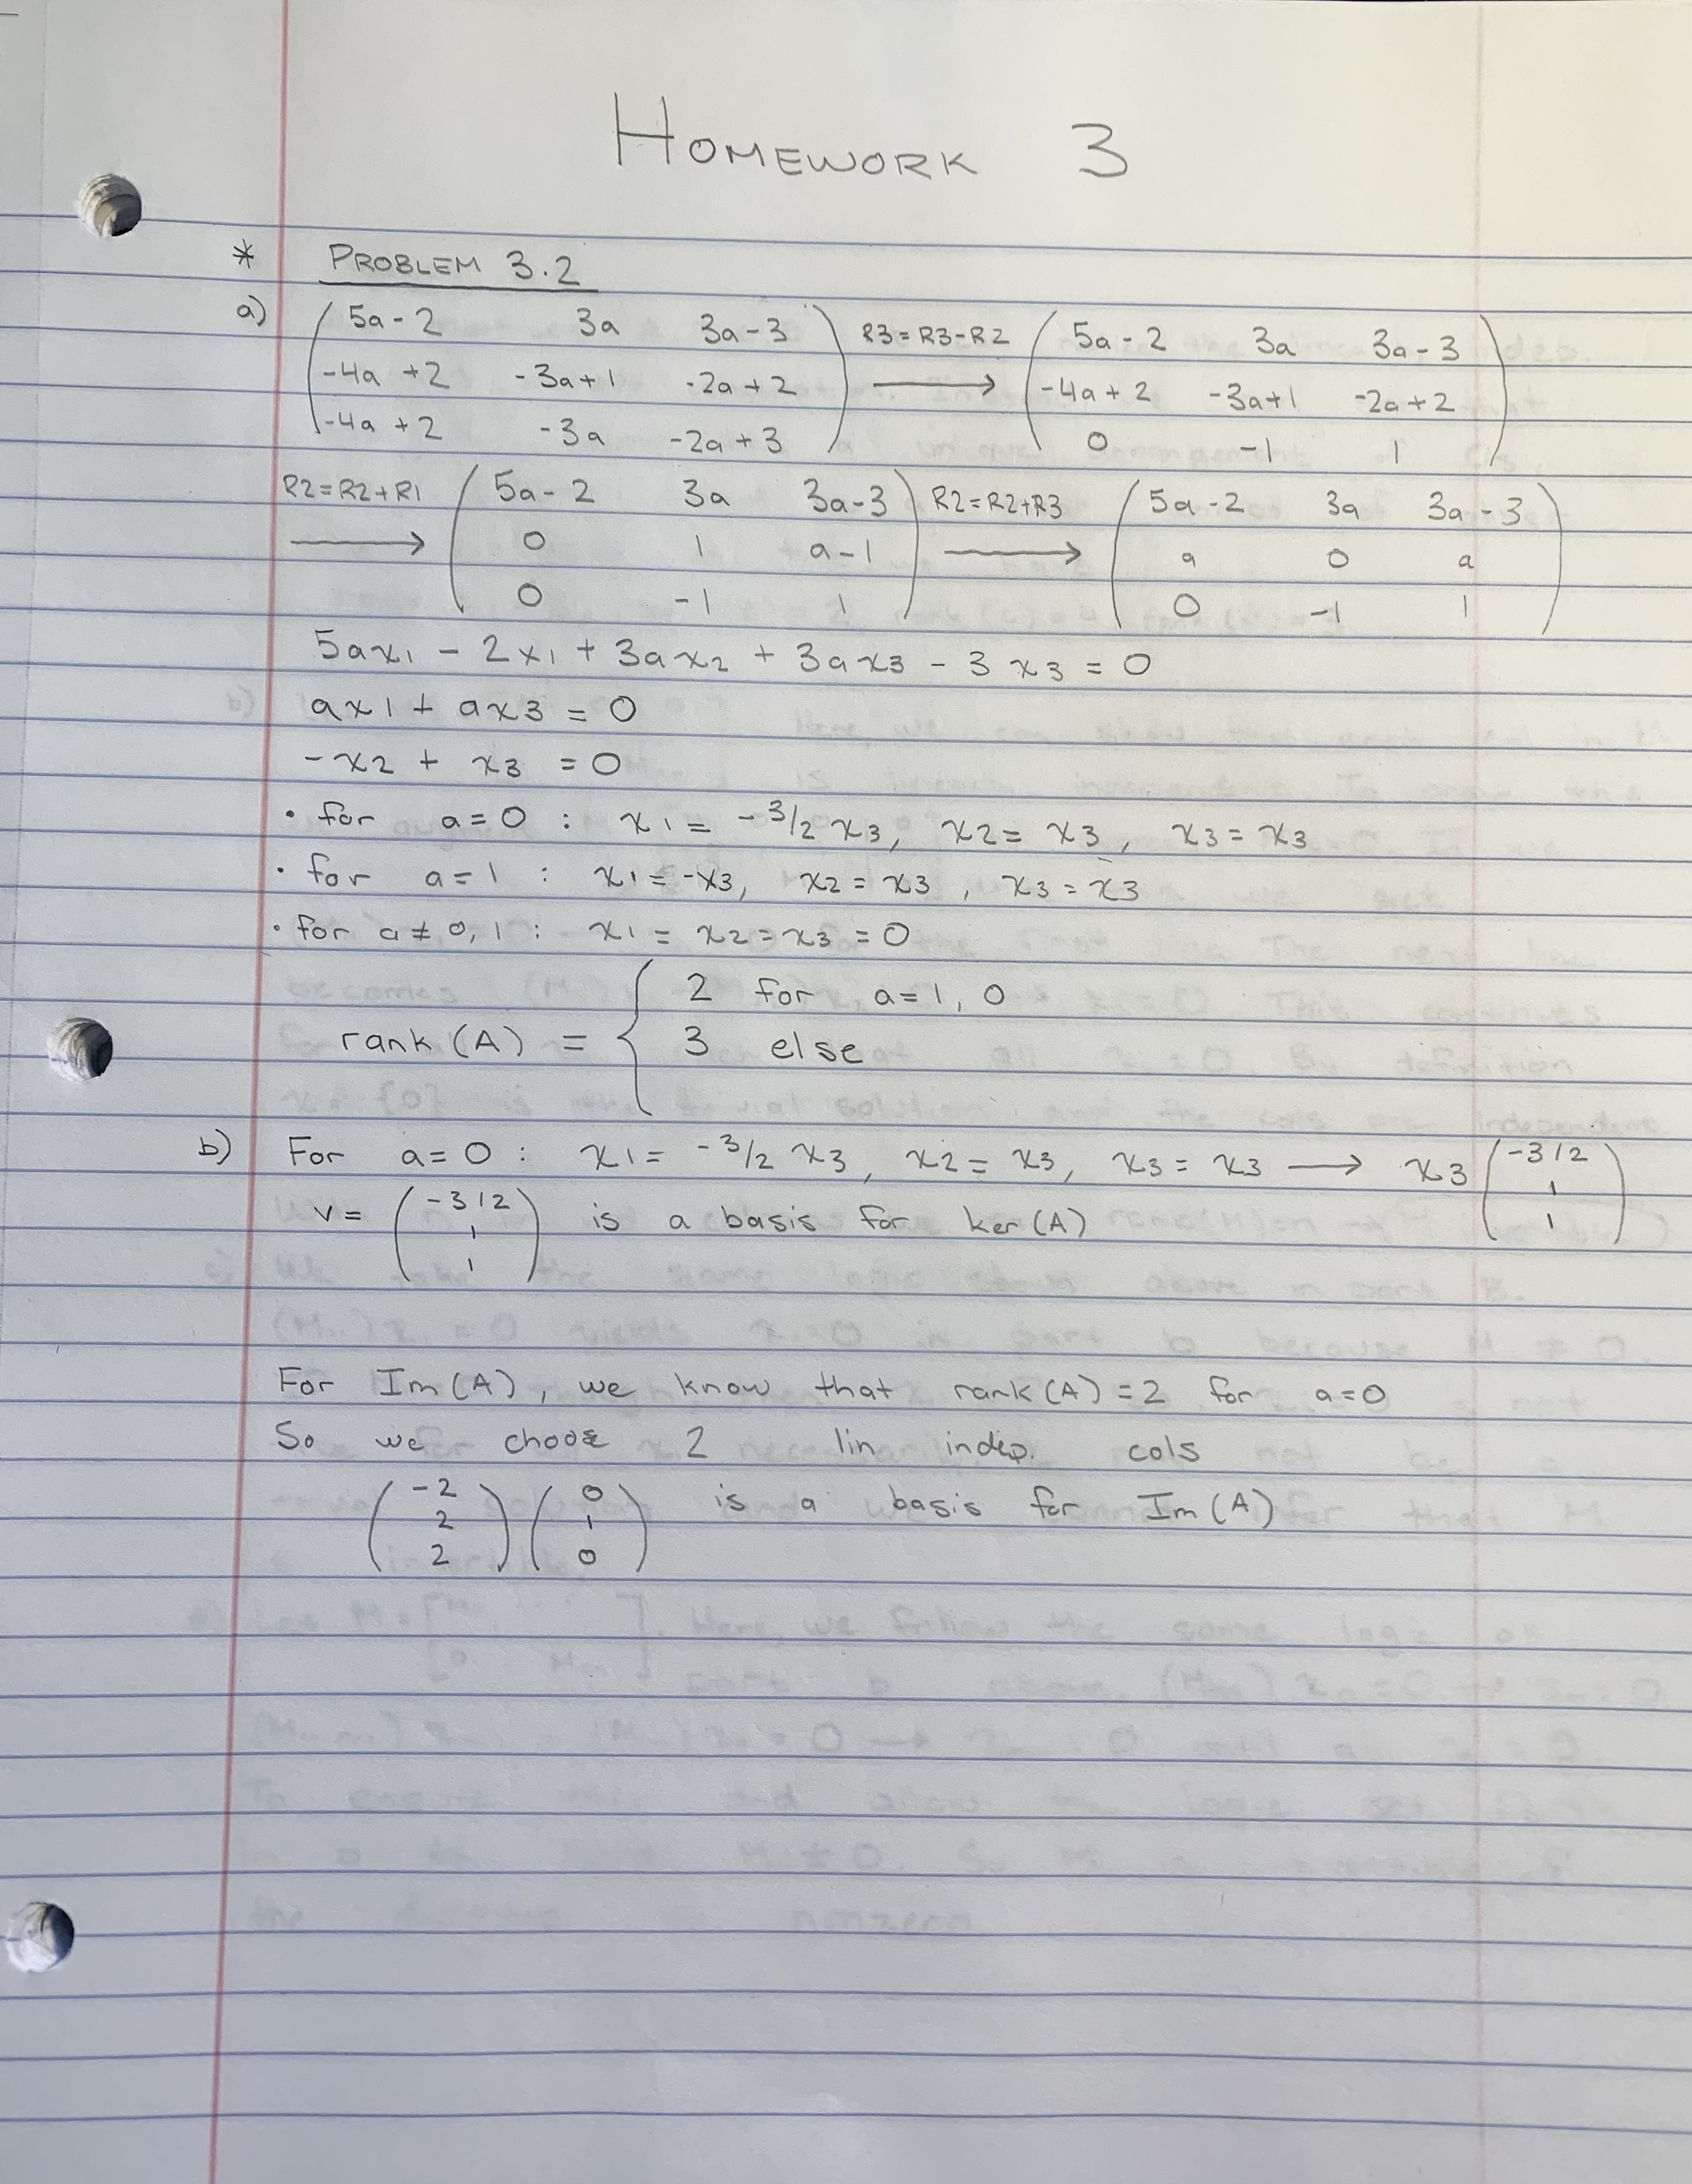 HOMEWORK 3
* PROBLEM 3.2
a) ( 5a-2 3a 3a-3 ) R3=R3-R2 ( 5a-2 3a 3a-3 )
-4a+2 -3a+1 -2a+2 → -4a+2 -3a+1 -2a+2
-4a+2 -3a -2a+3 0 -1 1
R2=R2+R1 ( 5a-2 3a 3a-3 ) R2=R2+R3 ( 5a-2 3a 3a-3 )
→ 0 1 a-1 → a 0 a
0 -1 1 0 -1 1
5ax1 - 2x1 + 3ax2 + 3ax3 - 3x3 = 0
ax1 + ax3 = 0
-x2 + x3 = 0
• for a=0 : x1 = -3/2 x3, x2 = x3, x3 = x3
• for a=1 : x1 = -x3, x2 = x3, x3 = x3
• for a≠0,1 : x1 = x2 = x3 = 0
rank(A) = { 2 for a=1, 0
3 else
b) For a=0 : x1 = -3/2 x3, x2 = x3, x3 = x3 → x3 ( -3/2
1
1 )
v = ( -3/2
1
1 ) is a basis for ker(A)
For Im(A), we know that rank(A)=2 for a=0
So we choose 2 lin indep. cols
( -2 ) ( 0 ) is a basis for Im(A)
2 1
2 0